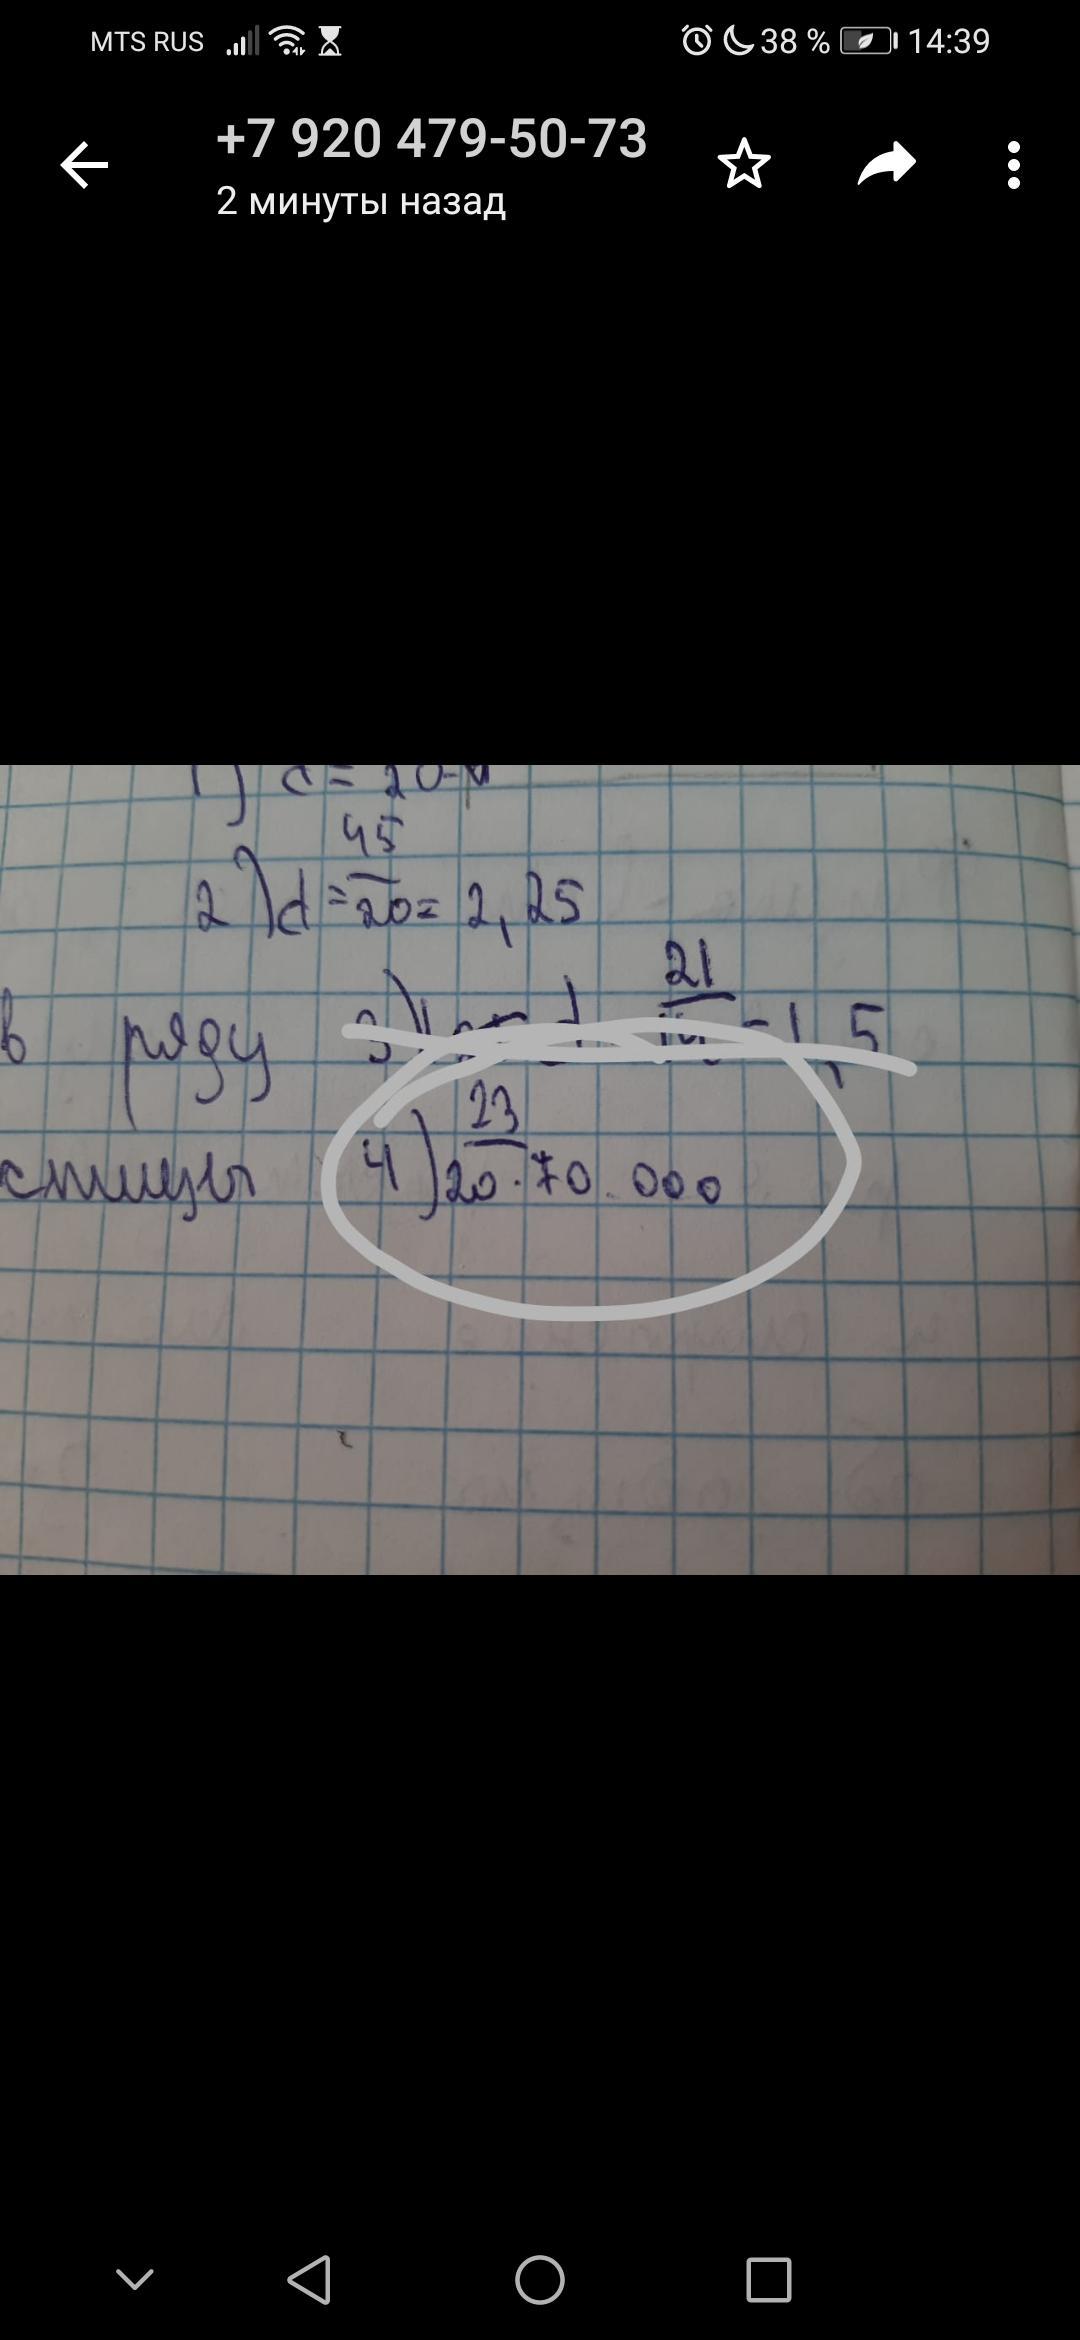 MTS RUS 38 % 14:39
+7 920 479-50-73
2 минуты назад
45
2) d = 20 = 2,25
21
в ряду 3) d = 1,5
23
4) 20 · 70.000